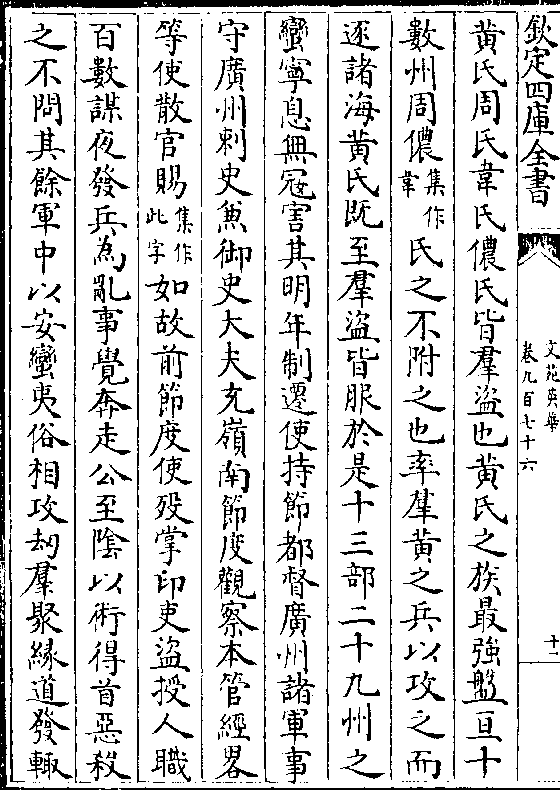 欽定四庫全書
文苑英華
卷九百七十六
十二
黄氏周氏韋氏儂氏皆羣盜也黄氏之族最強盤亘十
數州周儂集作韋氏之不附之也率羣黄之兵以攻之而
逐諸海黄氏既至羣盜皆服於是十三部二十九州之
蠻寧息無冦害其明年制遷使持節都督廣州諸軍事
守廣州刺史兼御史大夫充嶺南節度觀察本管經畧
等使散官賜集作此字如故前節度使殁掌印吏盜授人職
百數謀夜發兵為亂事覺奔走公至隂以術得首惡殺
之不問其餘軍中以安蠻夷俗相攻刼羣聚緣道發輙